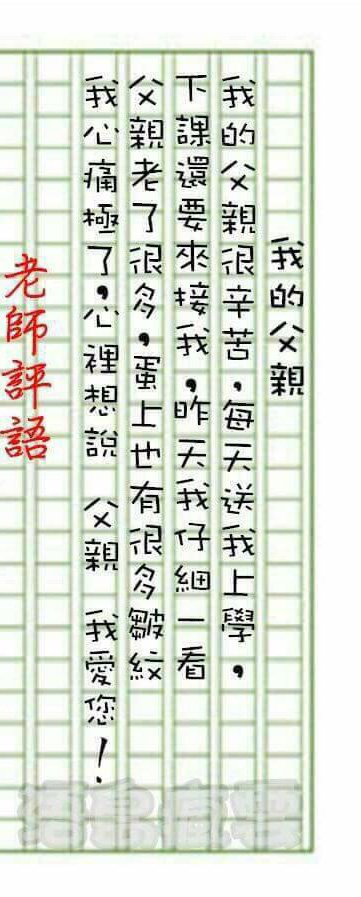 我的父親
我的父親很辛苦，每天送我上學，
下課還要來接我，昨天我仔細一看
父親老了很多，蛋上也有很多皺紋
我心痛極了，心裡想說　父親　我愛您！
老師評語